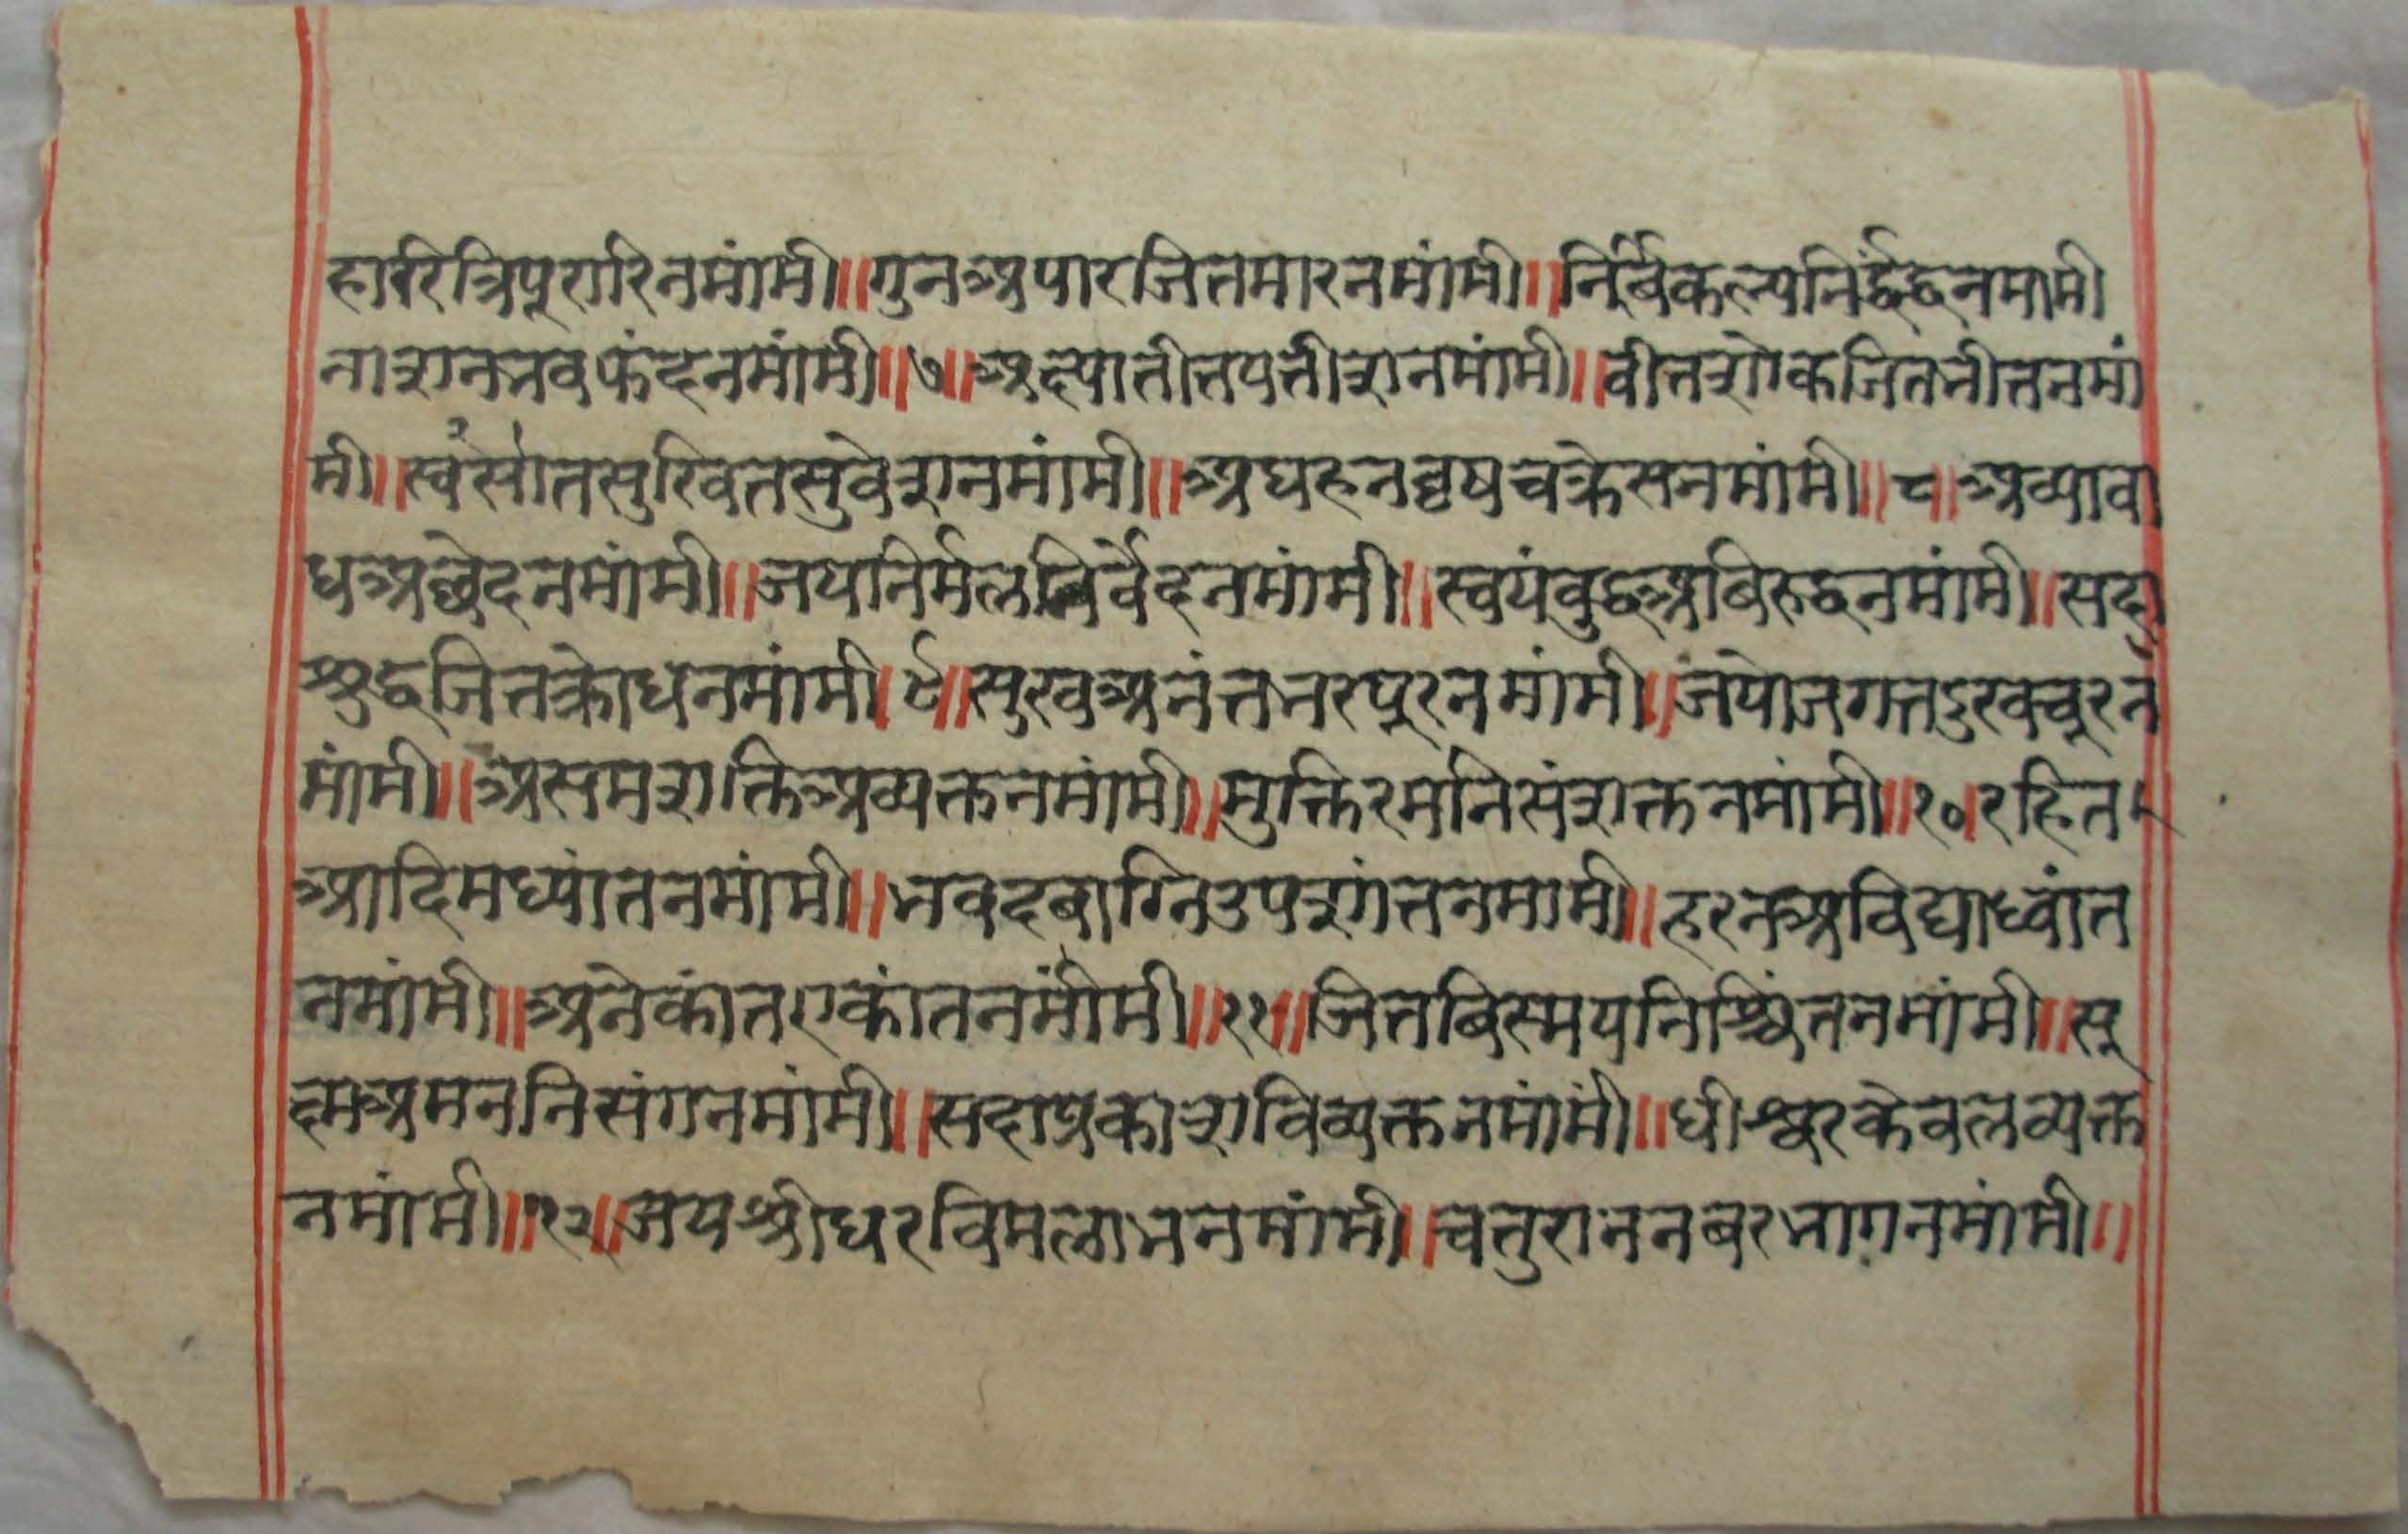 हारित्रिपूरारिनमांमी॥गुनअपारजितमारनमांमी॥निर्बिकल्पनिर्द्वद्वनमामी
नाशनभवफंदनमांमी॥७॥अक्ष्यातीतपतीशनमांमी॥वीतशोकजितभीतनमां
मी॥स्वंसांतसुखितसुवेशनमांमी॥अघहनवृषचक्रेसनमांमी॥८॥अव्यावा
धअछेदनमांमी॥जयनिर्मलनिर्वेदनमांमी॥स्वयंवुद्धअबिरुद्धनमांमी॥सदा
शुद्धजितक्रोधनमांमी॥९॥सुखअनंतभरपूरनमांमी॥जपोजगतदुखचूरन
मांमी॥असमशक्तिअव्यक्तनमांमी॥मुक्तिरमनिसंशक्तनमांमी॥१०॥रहित
आदिमध्यांतनमांमी॥भवदबाग्निउपशांतनमामी॥हरनअविद्याध्वांत
नमांमी॥अनेकांतएकांतनमांमी॥११॥जितबिस्मयनिश्चिंतनमांमी॥सू
क्ष्मअमननिसंगनमांमी॥सदाप्रकाशविव्यक्तनमांमीं॥धीश्वरकेवलव्यक्त
नमांमी॥१२॥जयश्रीधरविमलाभनमांमी॥चतुराननबरभागनमांमी॥